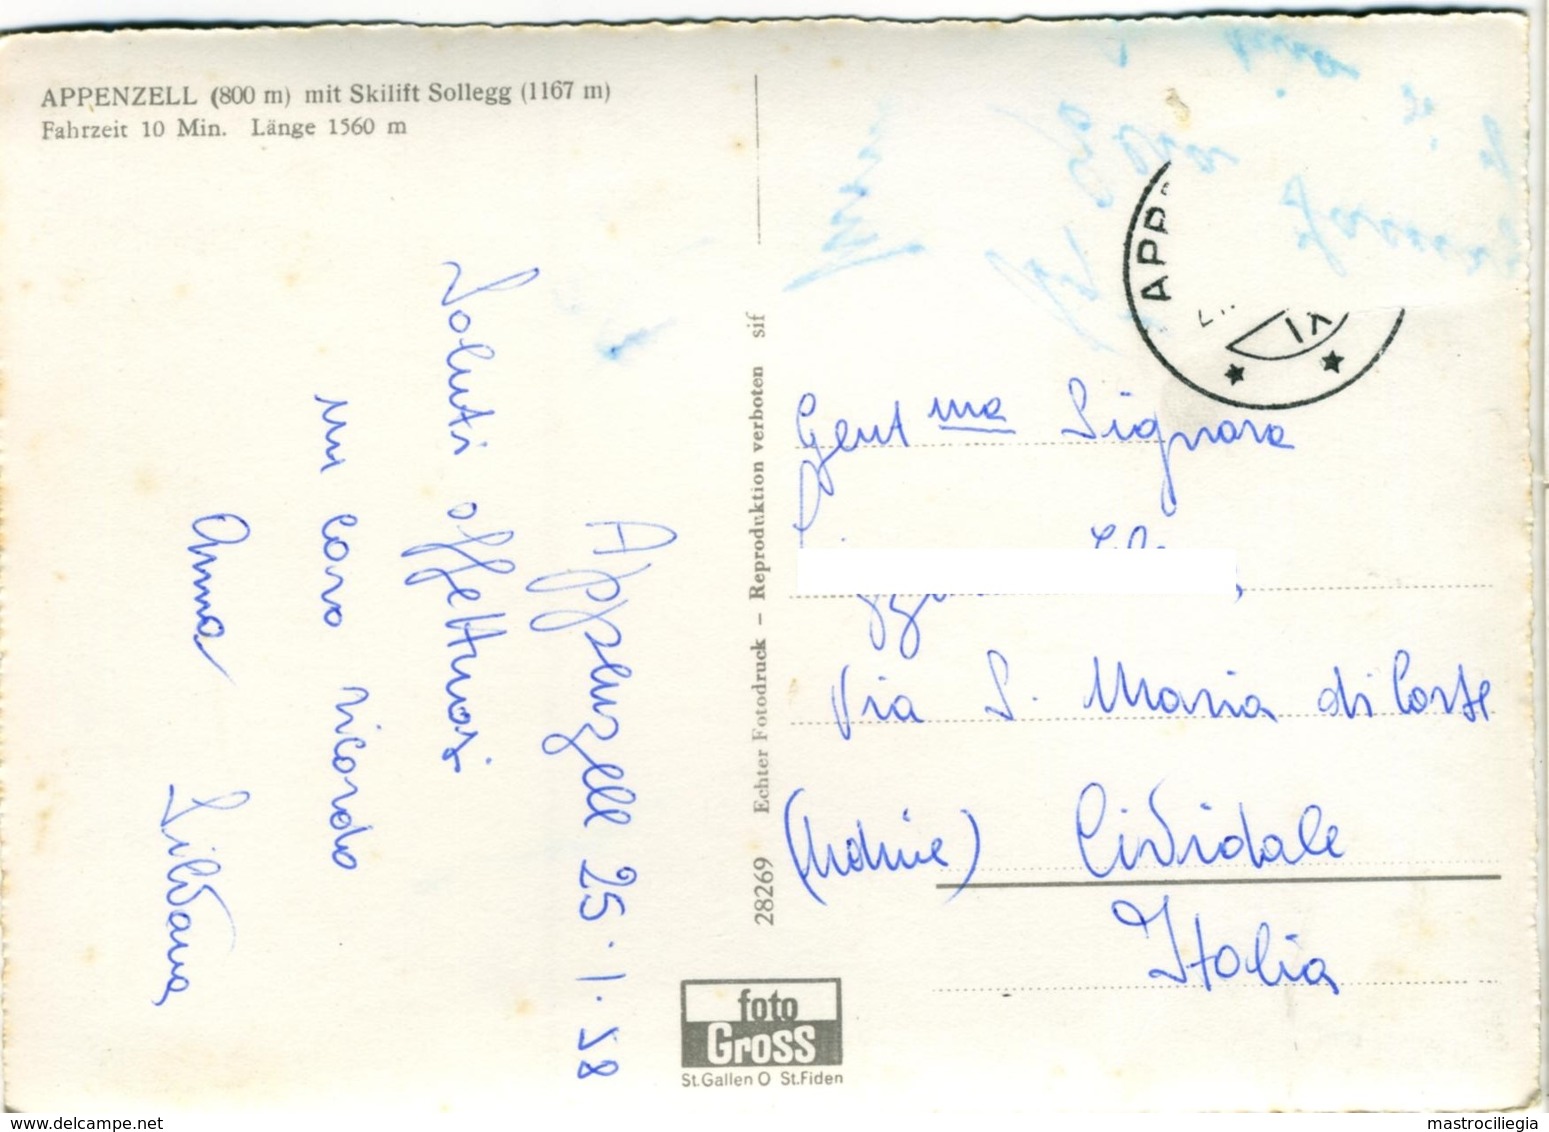 APPENZELL (800 m) mit Skilift Sollegg (1167 m)
Fahrzeit 10 Min. Länge 1560 m
Appenzell 25.1.58
Saluti affettuosi
un caro ricordo
Anna Silvana
28269 Echter Fotodruck – Reproduktion verboten sif
APP
XI
Gent ma Signora
Via S. Maria di Corte
(Udine) Cividale
Italia
foto
Gross
St.Gallen O St.Fiden
www.delcampe.net
mastrociliegia